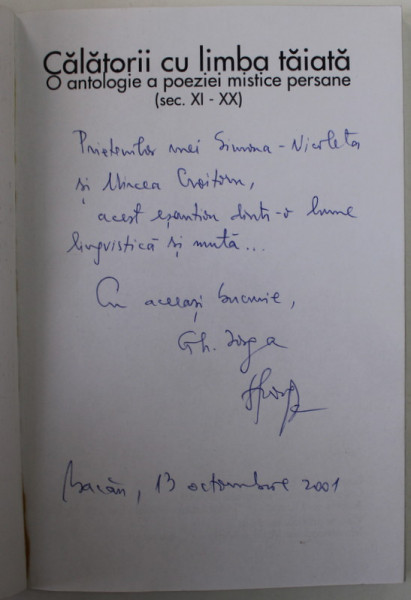 Călătorii cu limba tăiată
O antologie a poeziei mistice persane
(sec. XI - XX)
Prietenilor mei Simona-Nicoleta
și Mircea Croitoru,
acest eșantion dintr-o lume
lingvistică și mută...
Cu aceeași bucurie,
Gh. Iorga
Bacău, 13 octombrie 2001